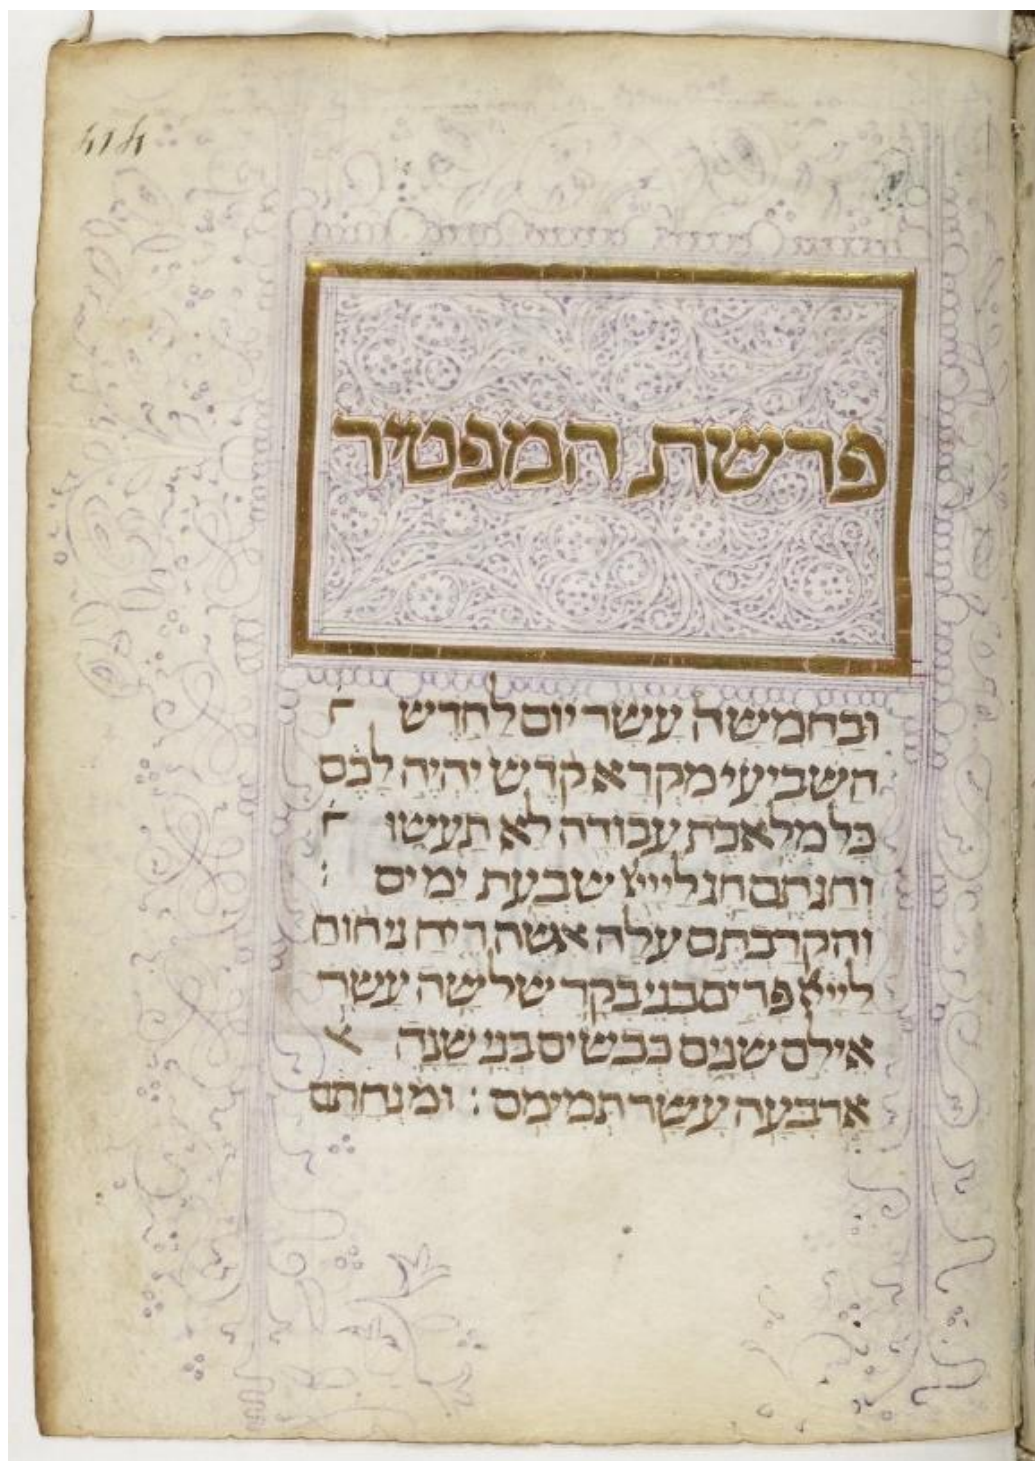 414
פרשת המפטיר
ובחמישה עשר יום לחדש
השביעי מקרא קדש יהיה לכם
כל מלאכת עבודה לא תעשו
וחגתם חג לייי שבעת ימים :
והקרבתם עלה אשה ריח ניחוח
לייי פרים בני בקר שלשה עשר
אילם שנים כבשים בני שנה
ארבעה עשר תמימם : ומנחתם